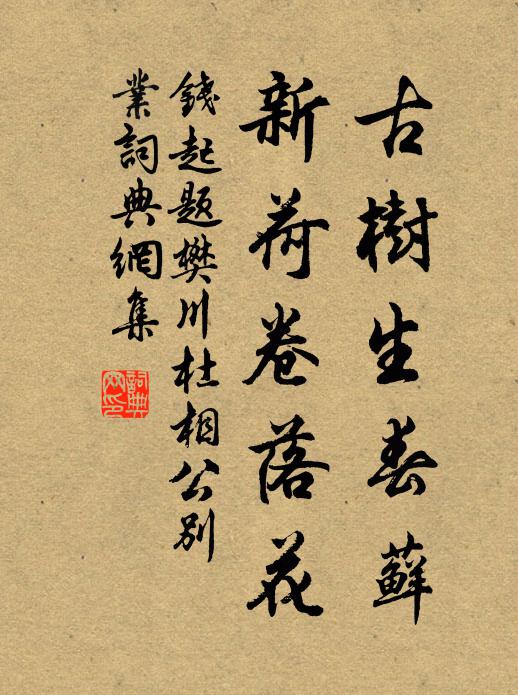 古樹生春蘚
新荷卷落花
錢起題樊川杜相公別
業詞典網集
詞典
网印